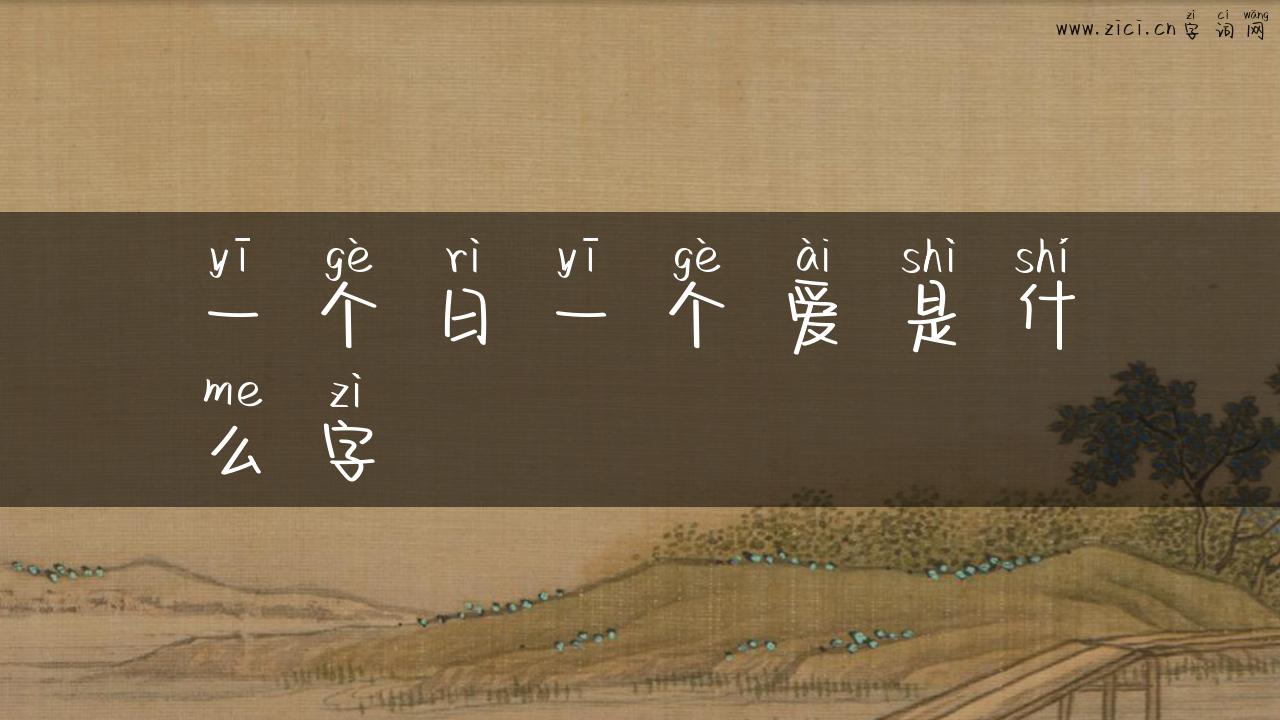 zì cí wǎng
www.zici.cn字词网
yī gè rì yī gè ài shì shí
一个日一个爱是什
me zì
么字